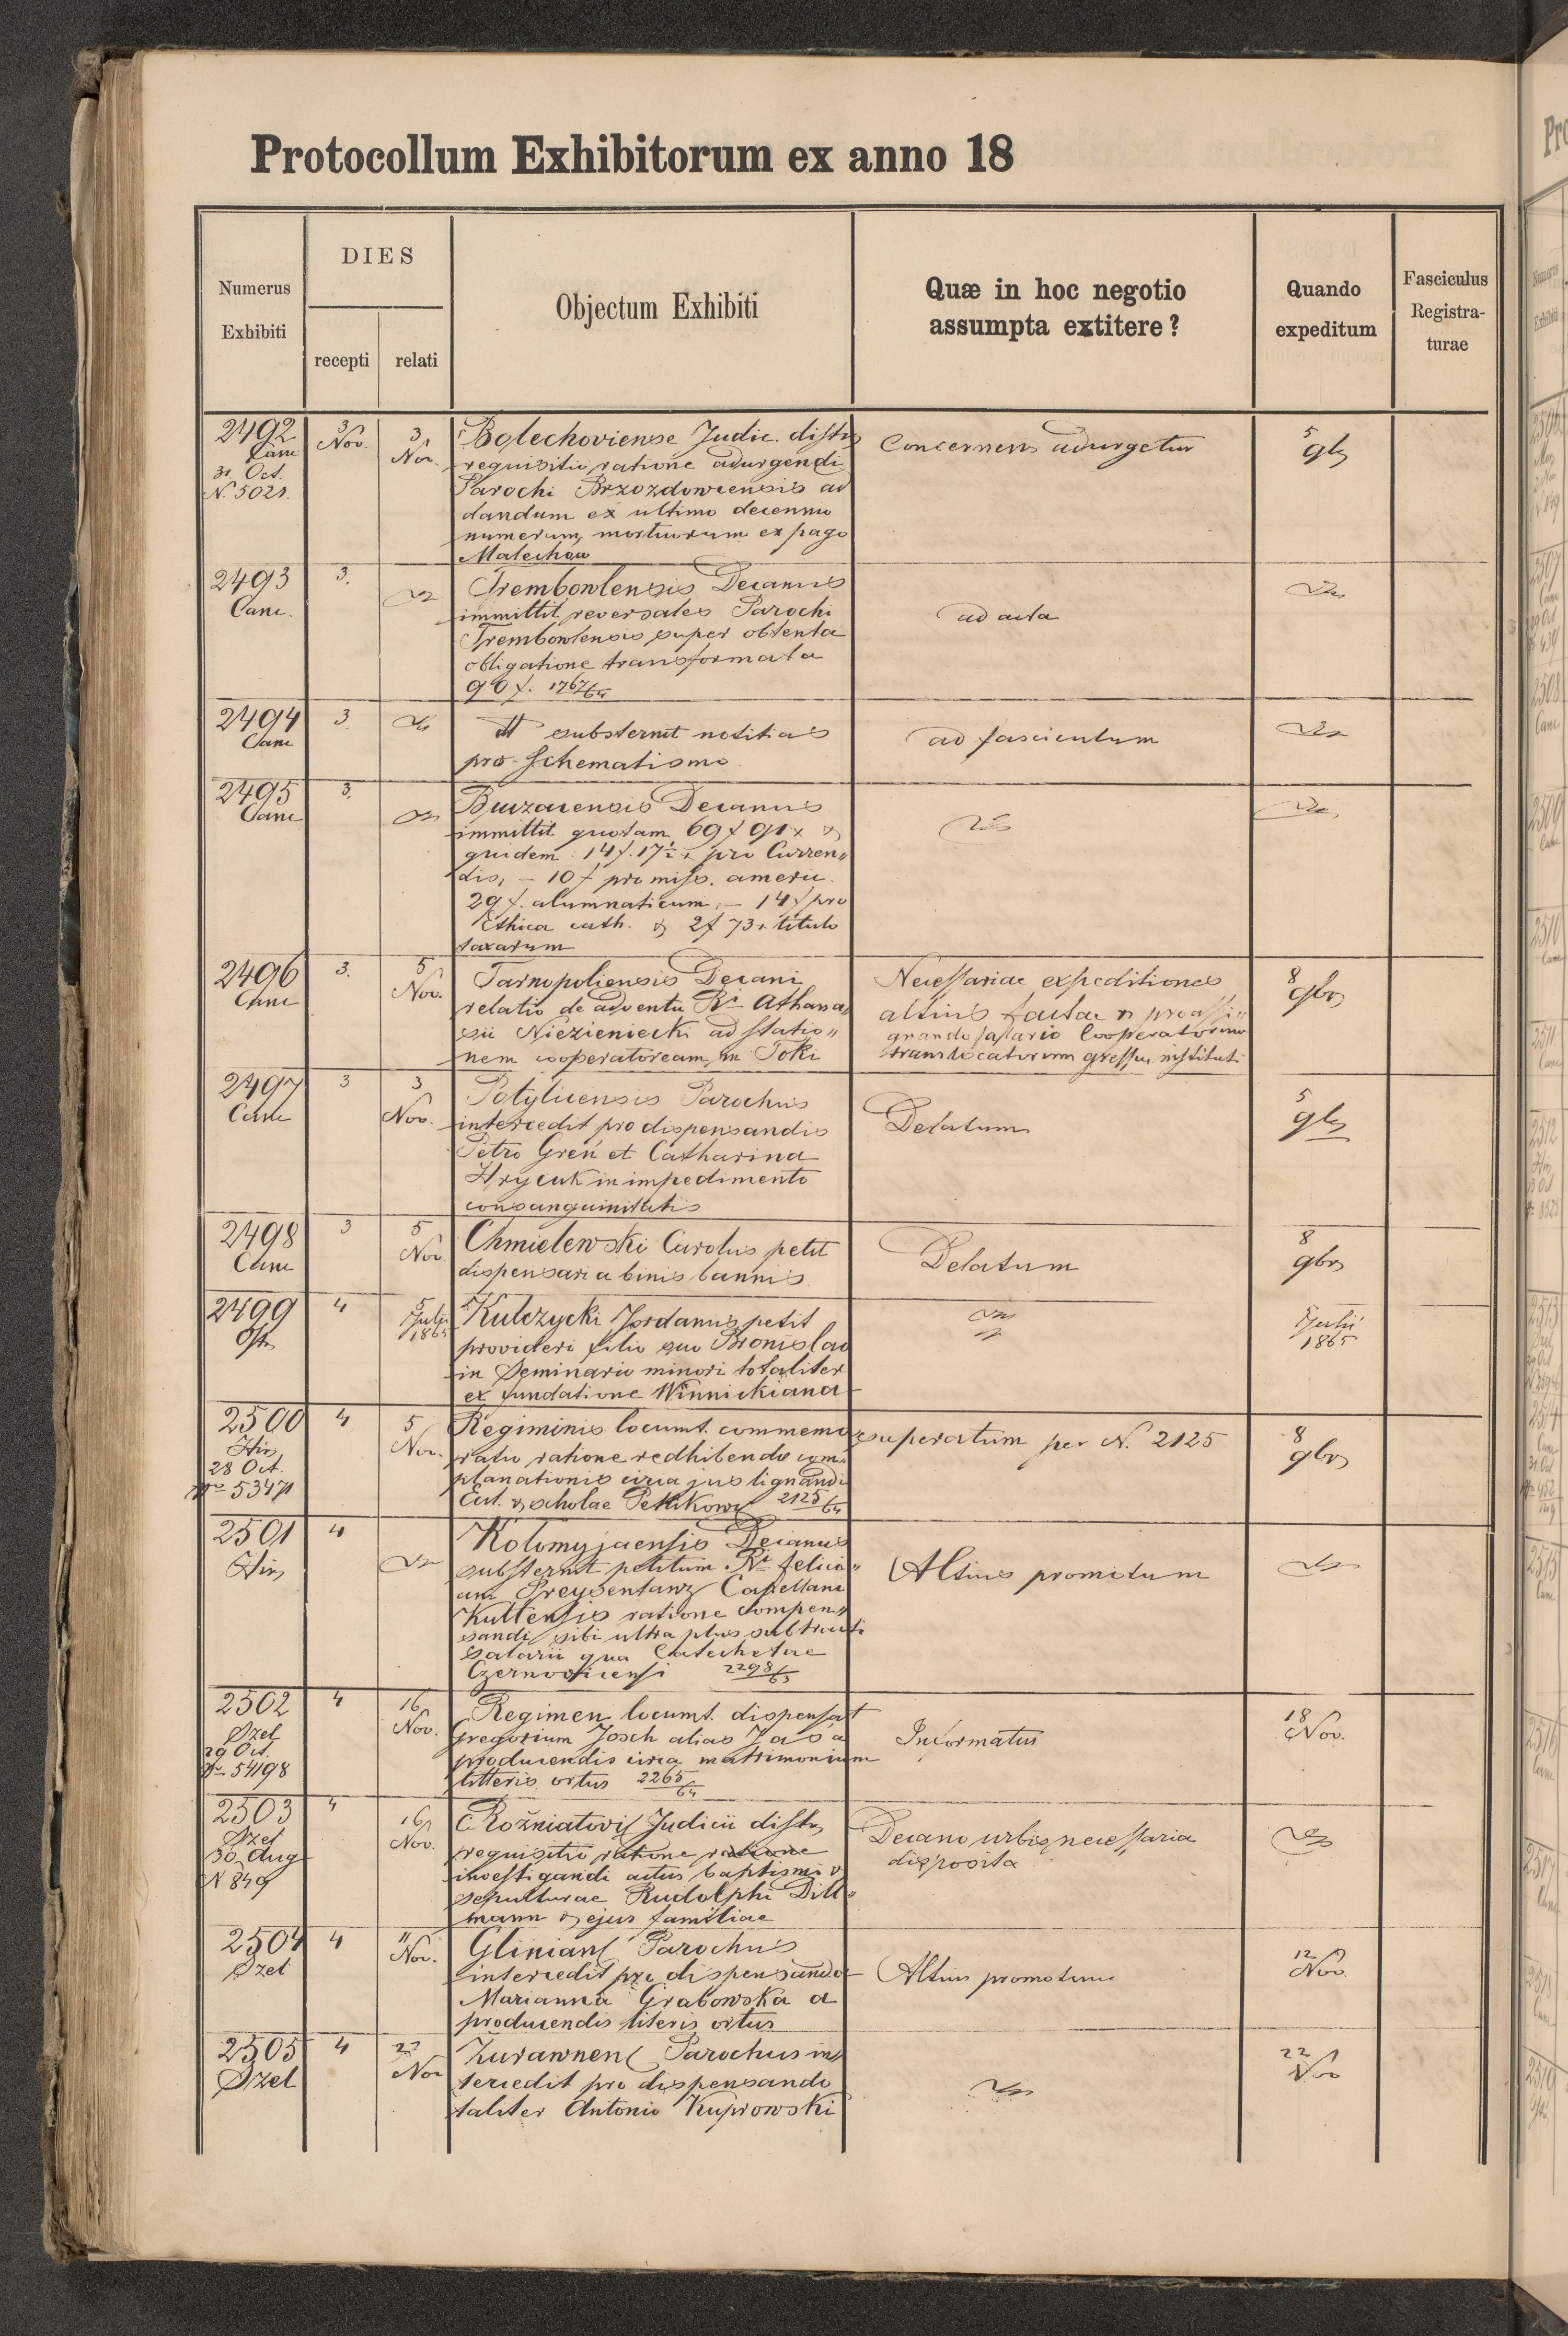 Protocollum Exhibitorum ex anno 18
Numerus
Exhibiti
DIES
recepti
relati
Objectum Exhibiti
Quæ in hoc negotio
assumpta extitere?
Quando
expeditum
Fasciculus
Registra-
turae
2492
Canc
31 Oct.
N. 5021.
3
Nov.
3
Nov.
Bolechoviense Judic. distr
requisitio ratione adurgendi
Parochi Brzozdowcensis ad
dandum ex ultimo decennio
numerum mortuorum ex pago
Malechow
Concernens adurgetur
5
9b
2493
Canc.
3.
Trembowlensis Decanus
immittit reversales Parochi
Trembowlensis super obtenta
obligatione transformata
90 f. 1767/64
ad acta
2494
Canc
3
substernit notitias
pro Schematismo
ad fasciculum
2495
Canc
3.
Buczacensis Decanus
immittit quotam 69 f 91 x &
quidem 14 f. 17½ x pro Curren„
dis, – 10 f pro miss. americ.
29 f. alumnaticum, – 14 f pro
Ethica cath. & 2 f 73 x titulo
taxarum
2496
Canc
3.
5
Nov.
Tarnopoliensis Decani
relatio de adventu Ri Athana„
sii Niezieniecki ad statio„
nem cooperatoream in Toki
Necessariae expeditiones
altius factae & pro assi„
gnando salario Cooperatorum
translocatorum gressus instituti
8
9br
2497
Canc
3
3
Nov.
Potylicensis Parochus
intercedit pro dispensandis
Petro Greń et Catharina
Hrycuk in impedimento
consanguinitatis
Delatum
5
9b
2498
Canc
3
5
Nov
Chmielewski Carolus petit
dispensari a binis bannis
Delatum
8
9br
2499
4
5
Julii
1865
Kulczycki Jordanus petit
provideri filio suo Bronislao
in Seminario minori totaliter
ex fundatione Winnickiana
5
Julii
1865
2500
Hir
28 Oct.
Nro 53471
4
5
Nov.
Regiminis locumt. commemo
ratio ratione redhibendae com„
planationis circa jus lignandi
Eccl. & scholae Petlikow 2125/64
superatum per N. 2125
8
9br
2501
Hir
4
Kolomyjaensis Decanus
substernit petitum Ri Felici„
ani Preysentanz Capellani
Kuttensis ratione compen„
sandi sibi ultra plus subtracti
salarii qua Catechetae
Czernovicensi 2298/63
Altius promotum
2502
Szel
29 Oct.
Nro 54198
4
16
Nov.
Regimen locumt. dispensat
Gregorium Josch alias Jasa
producendis circa matrimonium
litteris ortus 2265/64
Informatus
18
Nov.
2503
Szel
30 Aug
N 849
4
16
Nov.
Rożniatovi Judicii distr
requisitio ratione ratione
investigandi actus baptismi &
sepulturae Rudolphi Dill„
mann & ejus familiae
Decano urbis necessaria
disposita
2504
Szel
4
11
Nov.
Glinian Parochus
intercedit pro dispensanda
Marianna Grabowska a
producendis literis ortus
Altius promotum
12
Nov.
2505
Szel
4
22
Nov
Żurawnen Parochus in„
tercedit pro dispensando
taliter Antonio Kuprowski
22
Nov